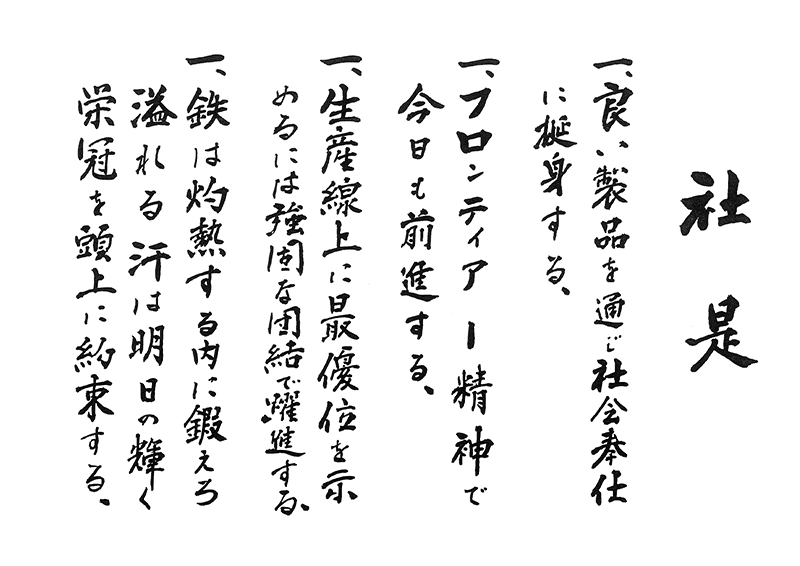 社是
一、良い製品を通じ社会奉仕
に挺身する、
一、フロンティアー精神で
今日も前進する、
一、生産線上に最優位を示
めるには強固な団結で躍進する、
一、鉄は灼熱する内に鍛えろ
溢れる汗は明日の輝く
栄冠を頭上に約束する、